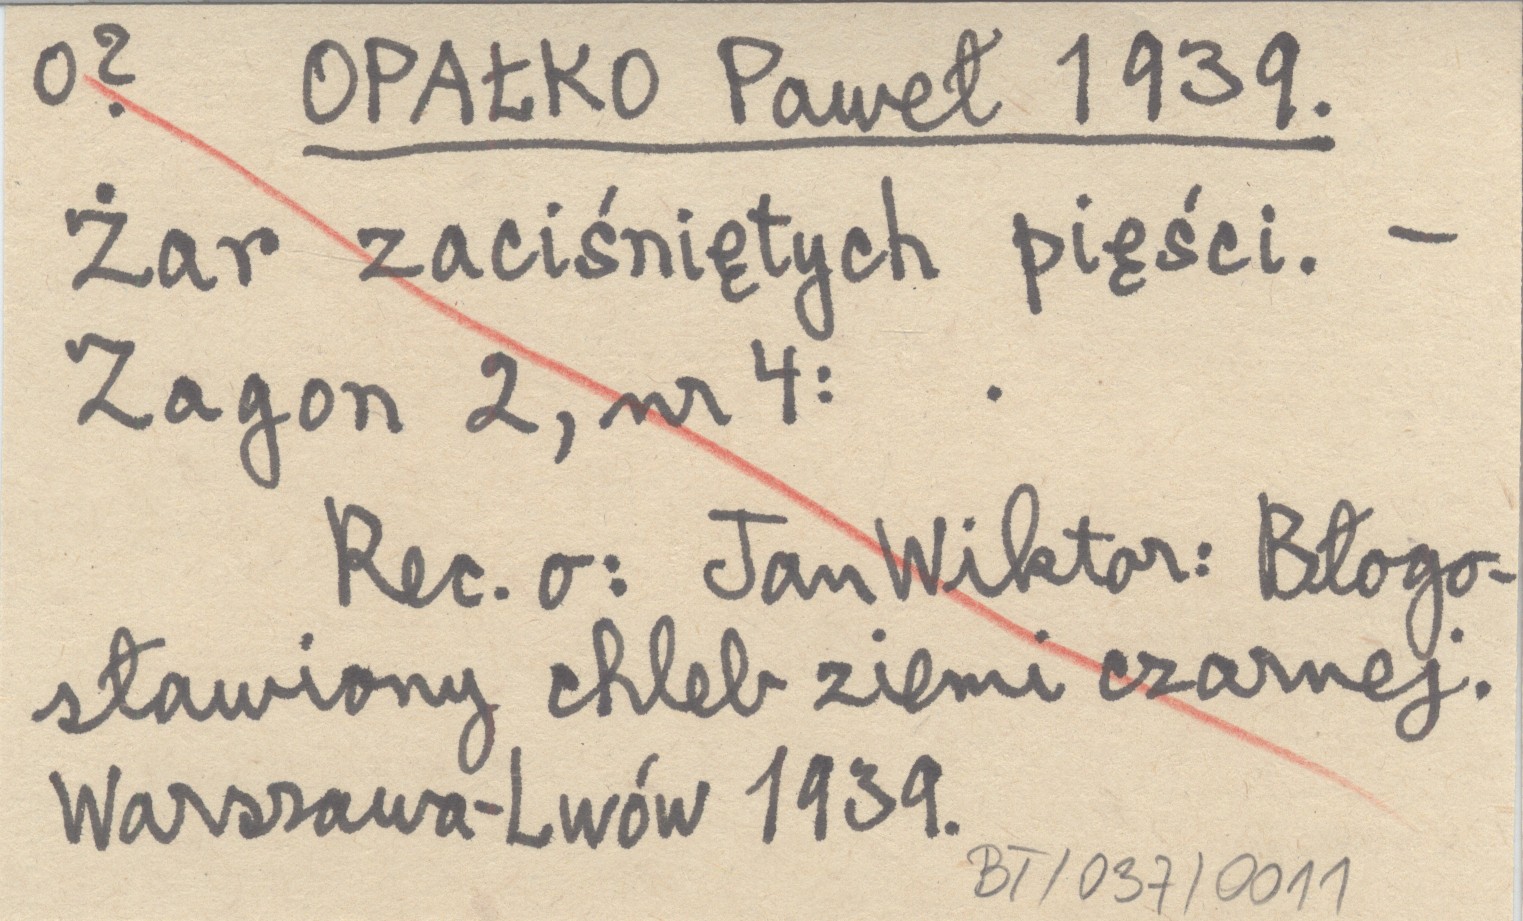 o? OPAŁKO Paweł 1939.
Żar zaciśniętych pięści. –
Zagon 2, nr 4: .
Rec. o: Jan Wiktor: Błogo-
sławiony chleb ziemi czarnej.
Warszawa-Lwów 1939.
BT/037/0011